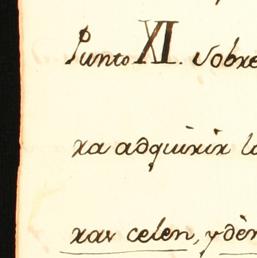 Punto XI. Sobre
ra adquirir la
xar celen, y dèn